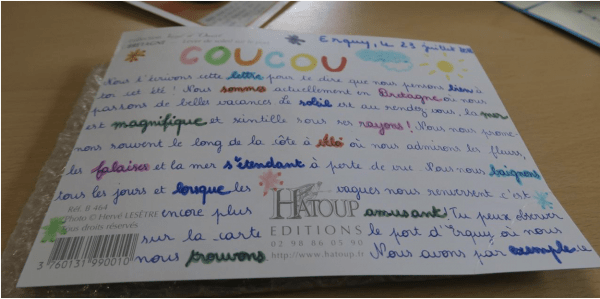 Erquy, le 23 juillet
BRETAGNE
COUCOU
Nous t'écrivons cette lettre pour te dire que nous pensons bien à
toi cet été ! Nous sommes actuellement en Bretagne où nous
passons de belles vacances. Le soleil est au rendez vous, la mer
est magnifique et scintille sous ses rayons ! Nous nous prome-
nons souvent le long de la côte à où nous admirons les fleurs,
les falaises et la mer s'étendant à perte de vue. Nous nous baignons
tous les jours et lorsque les vagues nous renversent c'est
Réf. B 464
Photo © Hervé LESÊTRE
Tous droits réservés
encore plus
HATOUP
amusant ! Tu peux observer
EDITIONS
sur la carte
02 98 86 05 90
le port d'Erquy où nous
3 760131 990010
nous trouvons
http://www.hatoup.fr
Nous avons par exemple